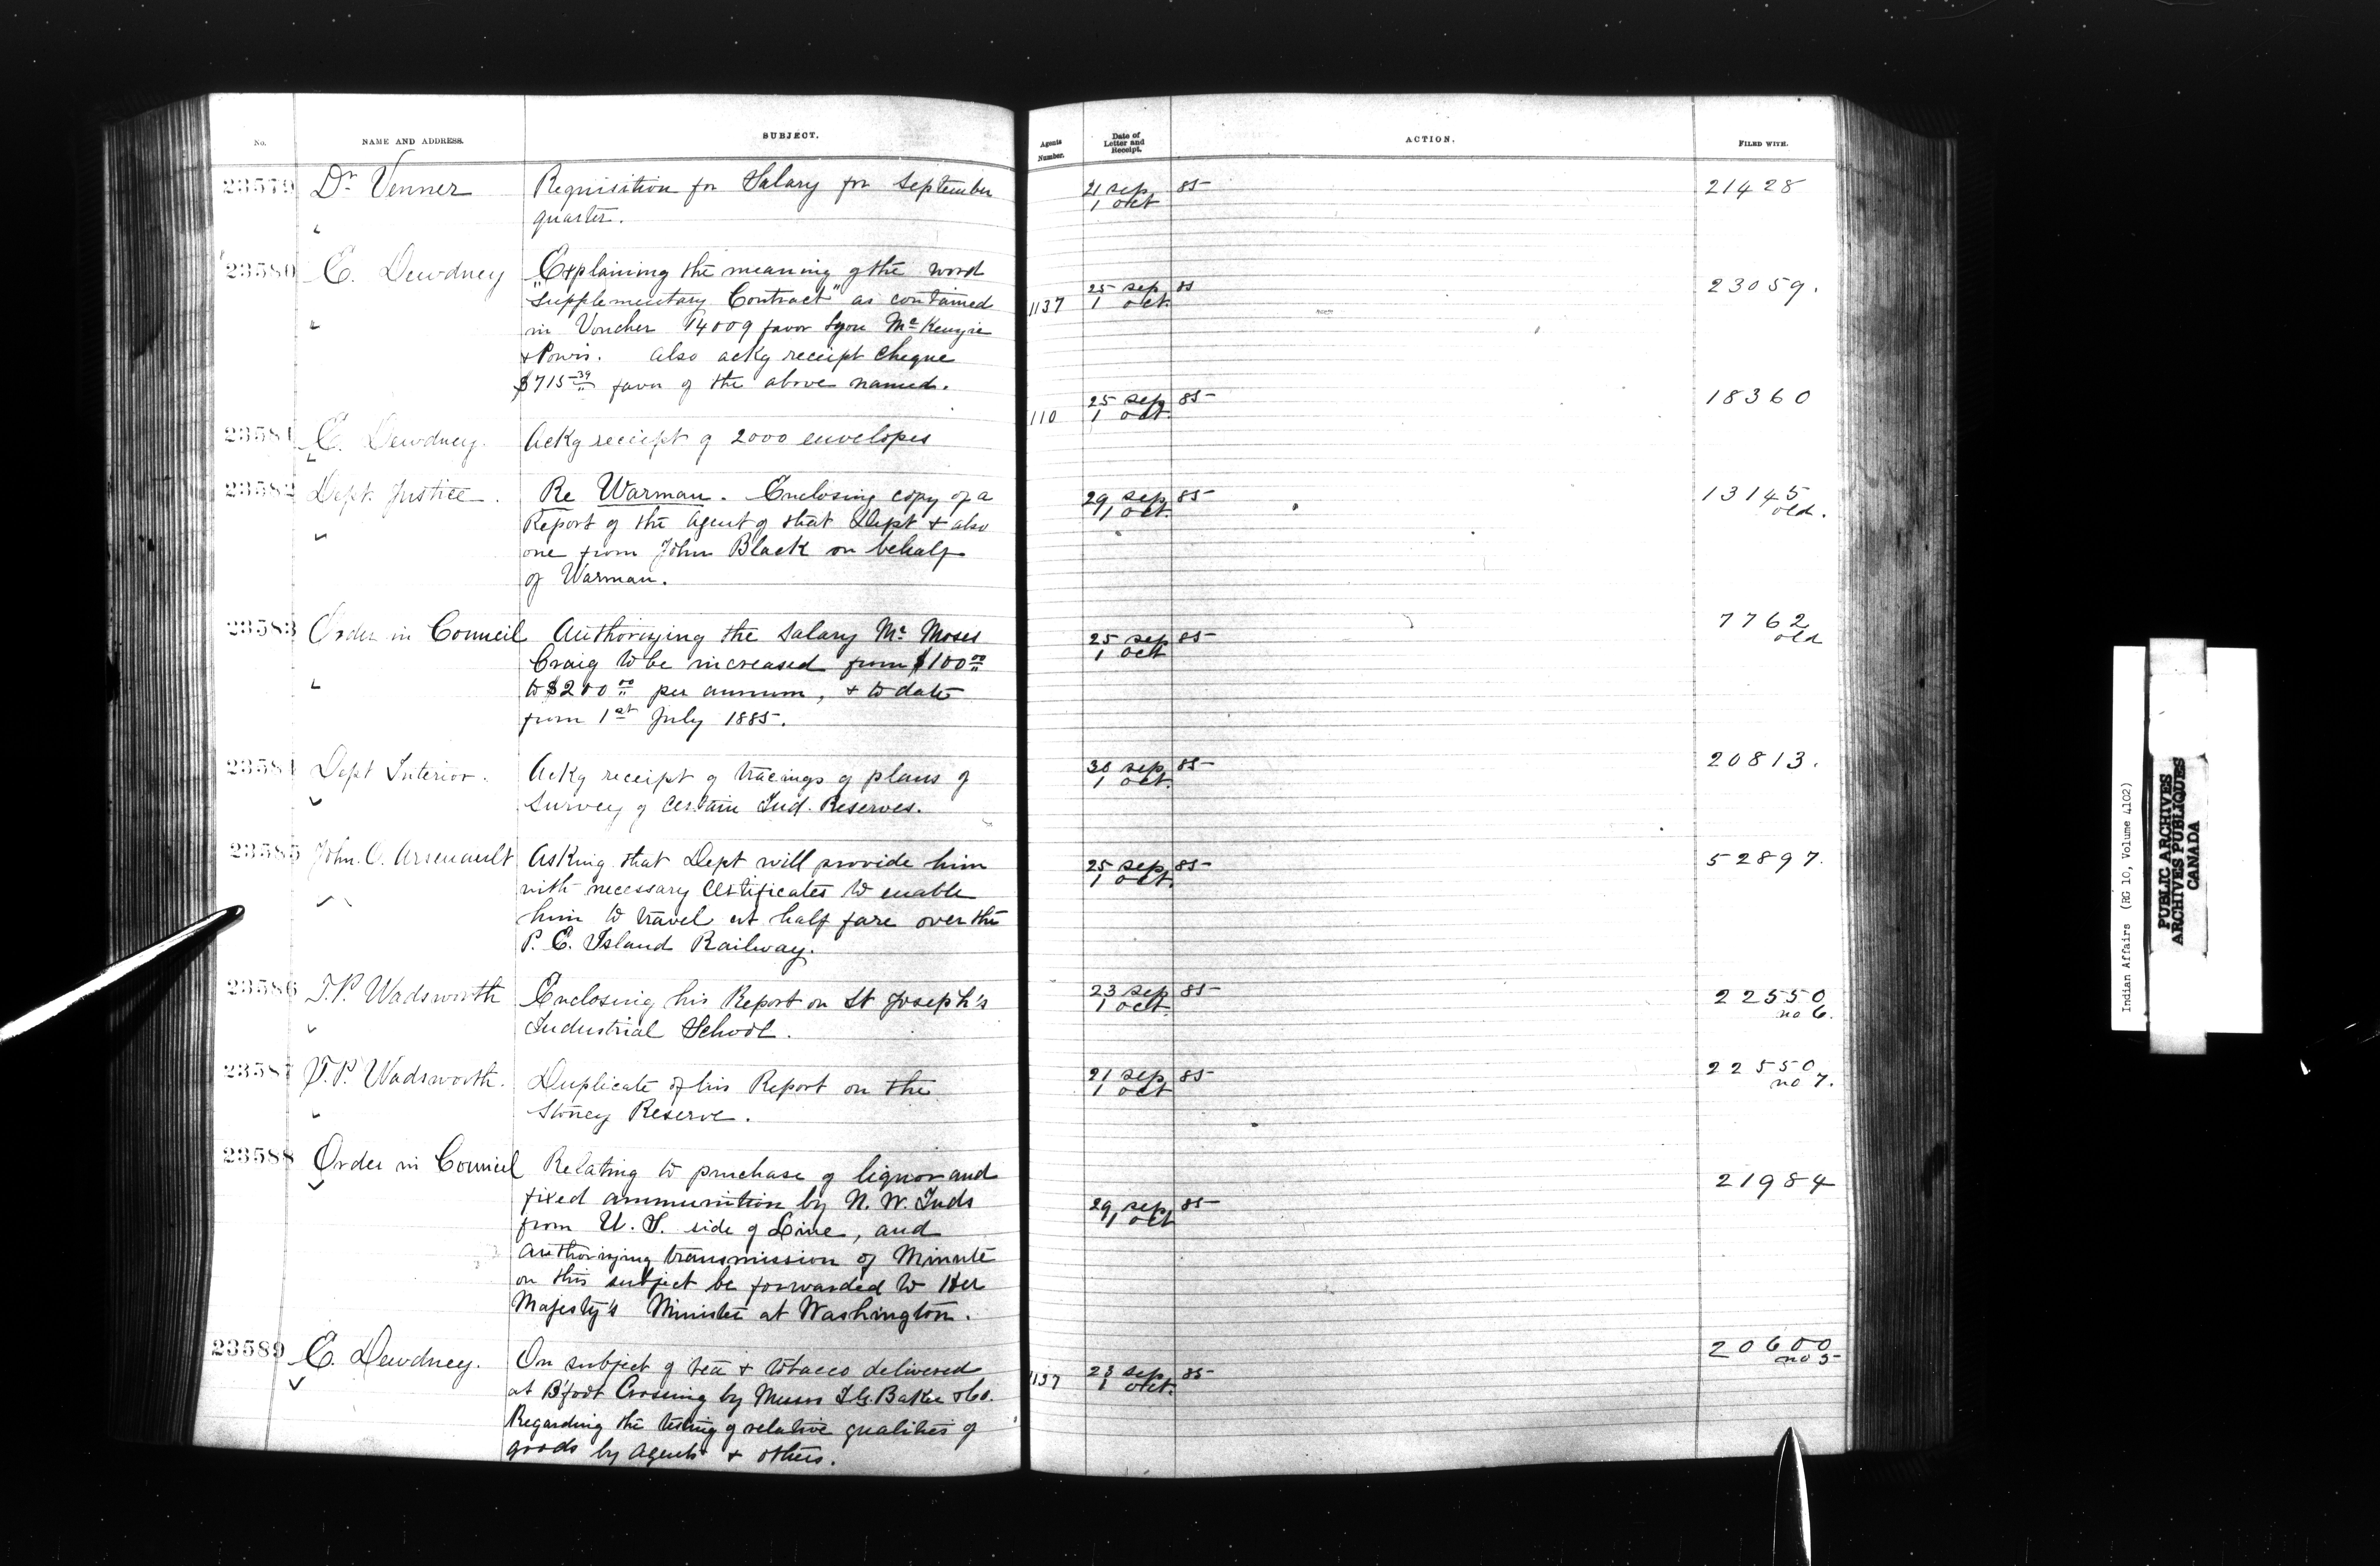 No. NAME AND ADDRESS. SUBJECT. Agents Number. Date of Letter and Receipt. ACTION. FILED WITH.
23579 Dr. Venner Requisition for Salary for September 21 sep 85 21428
quarter. 1 oct
23580 E. Dewdney Explaining the meaning of the word 25 sep 85 23059.
"Supplementary Contract" as contained 1137 1 oct.
in Voucher 14009 favor Lyon McKenzie
& Powis. Also ackg receipt cheque
$715.39 favor of the above named.
23581 E. Dewdney. Ackg receipt of 2000 envelopes 110 25 sep 85 18360
1 oct.
23582 Dept. Justice. Re Warman. Enclosing copy of a 29 sep 85 13145
Report of the Agent of that Dept & also 1 oct. old.
one from John Black on behalf
of Warman.
23583 Order in Council Authorizing the Salary Mr. Moses 25 sep 85 7762
Craig to be increased from $100.00 1 oct old
to $200.00 per annum, & to date
from 1st July 1885.
23584 Dept Interior. Ackg receipt of tracings of plans of 30 sep 85 20813.
Survey of certain Ind. Reserves. 1 oct.
23585 John. O. Arsenault Asking that Dept will provide him 25 sep 85 52897.
with necessary Certificates to enable 1 oct.
him to travel at half fare over the
P. E. Island Railway.
23586 T.P. Wadsworth Enclosing his Report on St Joseph's 23 sep 85 22550
Industrial School. 1 oct. no 6.
23587 T.P. Wadsworth. Duplicate of his Report on the 21 sep 85 22550
Stoney Reserve. 1 oct no 7.
23588 Order in Council Relating to purchase of liquor and 29 sep 85 21984
fixed ammunition by N. W. Inds 1 oct
from U. S. side of Line, and
authorizing transmission of Minute
on this subject be forwarded to Her
Majesty's Minister at Washington.
23589 E. Dewdney. On subject of tea & tobacco delivered 23 sep 85 20600
at B'foot Crossing by Messrs I.G. Baker & Co. 1137 1 oct. no 5
Regarding the testing of relative qualities of
goods by Agents & others.
Indian Affairs (RG 10, Volume 4102)
PUBLIC ARCHIVES
ARCHIVES PUBLIQUES
CANADA